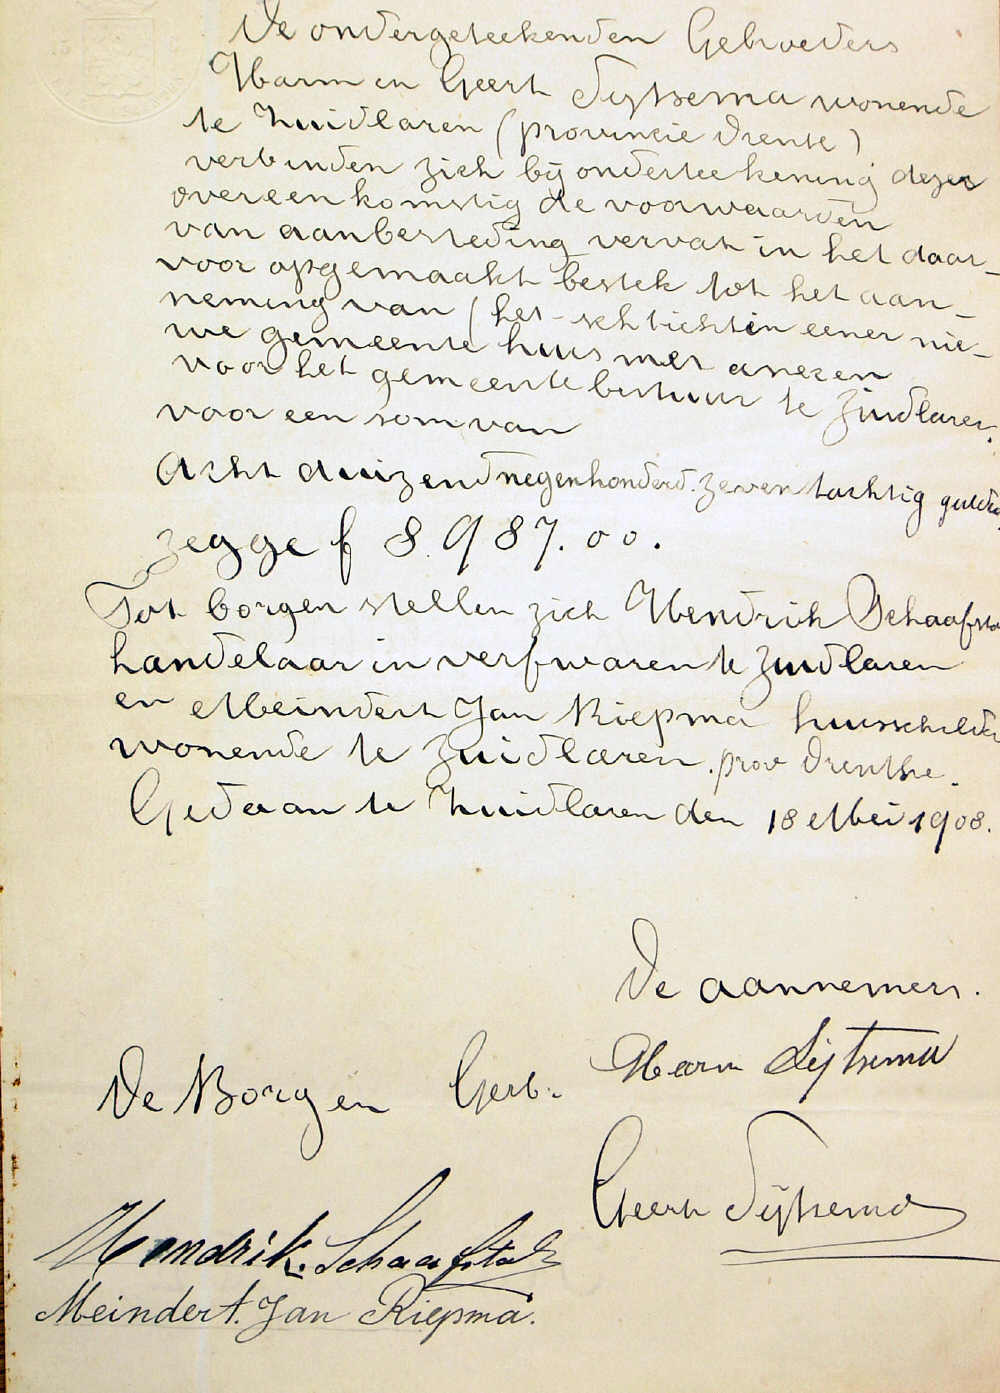 De ondergeteekenden Gebroeders
Harm en Geert Sijtsema wonende
te Zuidlaren (provincie Drente)
verbinden zich bij onderteekening dezer
overeenkomstig de voorwaarden
van aanbesteding vervat in het daar-
voor opgemaakt bestek tot het aan-
neming van het stichten eener nie-
we gemeente huis met annexen
voor het gemeente bestuur te Zuidlaren.
voor een som van
Acht duizend negenhonderd. zeven tachtig gulden.
zegge f 8.987.00.
Tot borgen stellen zich Hendrik Schaafstal
handelaar in verfwaren te Zuidlaren
en Meindert Jan Riepma huisschilder
wonende te Zuidlaren. prov Drenthe.
Gedaan te Zuidlaren den 18 Mei 1908.
De aannemers.
De Borgen Gebr. Harm Sijtsema
Geert Sijtsema
Hendrik. Schaafstal
Meindert. Jan Riepma.